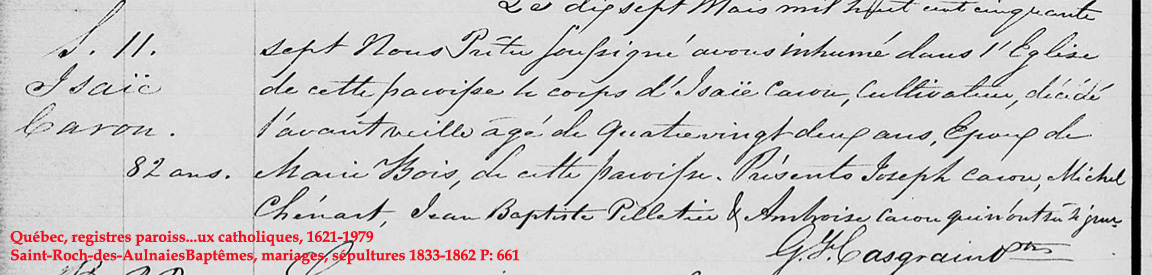 Le dix sept Mars mil huit cent cinquante
S. 11.
Isaïe
Caron.
82 ans.
sept Nous Prêtre soussigné avons inhumé dans l'Eglise
de cette paroisse le corps d'Isaïe Caron, Cultivateur, décédé
l'avant veille âgé de Quatrevingt deux ans, Epoux de
Marie Bois, de cette paroisse. Présents Joseph Caron, Michel
Chénart, Jean Baptiste Pelletier & Ambroise Caron qui n'ont su signer
G. Casgrain Ptre
Québec, registres paroiss...ux catholiques, 1621-1979
Saint-Roch-des-AulnaiesBaptêmes, mariages, sépultures 1833-1862 P: 661